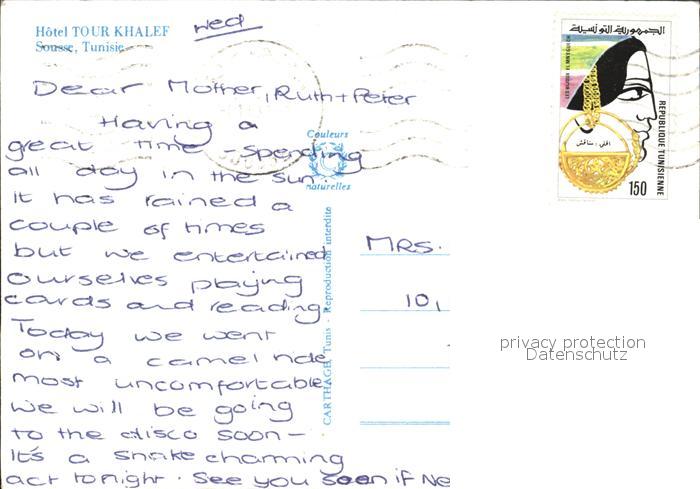 Hôtel TOUR KHALEF
Sousse, Tunisie
Wed
Dear Mother, Ruth + Peter
Having a
great time - spending
all day in the sun.
It has rained a
couple of times
but we entertained
ourselves playing
cards and reading.
Today we went
on a camel ride
most uncomfortable
We will be going
to the disco soon -
It's a snake charming
act tonight. See you soon if Ne
Couleurs
naturelles
CARTHAGE, Tunis - Reproduction interdite
MRS.
10,
الجمهورية التونسية
REPUBLIQUE TUNISIENNE
150
privacy protection
Datenschutz